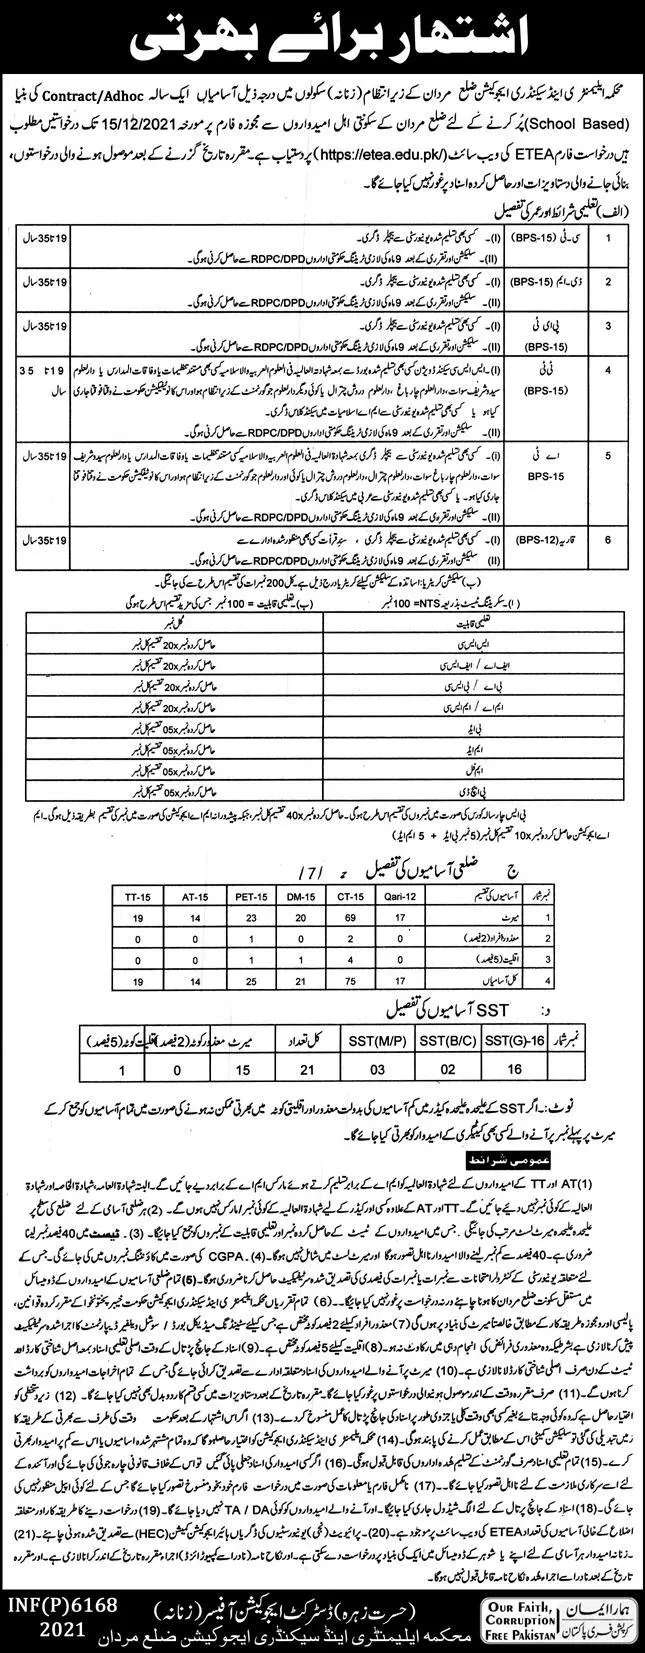 اشتہار برائے بھرتی
محکمہ ایلیمنٹری اینڈ سیکنڈری ایجوکیشن ضلع مردان کے زیر انتظام (زنانہ) سکولوں میں درجہ ذیل آسامیاں ایک سالہ Contract/Adhoc کی بنیاد
(School Based) پُر کرنے کے لئے ضلع مردان کے سکونتی اہل امیدواروں سے مجوزہ فارم پر مورخہ 15/12/2021 تک درخواستیں مطلوب
ہیں درخواست فارم ETEA کی ویب سائٹ (https://etea.edu.pk/) پر دستیاب ہے۔ مقررہ تاریخ گزرنے کے بعد موصول ہونے والی درخواستوں،
بنائی جانے والی دستاویزات اور حاصل کردہ اسناد پر غور نہیں کیا جائے گا۔
(الف) تعلیمی شرائط اور عمر کی تفصیل
1 سی۔ٹی (BPS-15) (I)۔ کسی بھی تسلیم شدہ یونیورسٹی سے بیچلر ڈگری۔ 19 تا 35 سال
(II)۔ سلیکشن اور تقرری کے بعد 9 ماہ کی لازمی ٹریننگ حکومتی اداروں RDPC/DPD سے حاصل کرنی ہوگی۔
2 ڈی۔ایم (BPS-15) (I)۔ کسی بھی تسلیم شدہ یونیورسٹی سے بیچلر ڈگری۔ 19 تا 35 سال
(II)۔ سلیکشن اور تقرری کے بعد 9 ماہ کی لازمی ٹریننگ حکومتی اداروں RDPC/DPD سے حاصل کرنی ہوگی۔
3 پی ای ٹی (BPS-15) (I)۔ کسی بھی تسلیم شدہ یونیورسٹی سے بیچلر ڈگری۔ 19 تا 35 سال
(II)۔ سلیکشن اور تقرری کے بعد 9 ماہ کی لازمی ٹریننگ حکومتی اداروں RDPC/DPD سے حاصل کرنی ہوگی۔
4 ٹی ٹی (BPS-15) (I)۔ ایس ایس سی سیکنڈ ڈویژن کسی بھی تسلیم شدہ بورڈ سے بمعہ شہادۃ العالیہ فی العلوم العربیہ والاسلامیہ کسی بھی مستند تنظیمات یا وفاقات المدارس یا دارالعلوم 19 تا 35 سال
سیدو شریف سوات، دارالعلوم چارباغ، دارالعلوم دروش چترال یا کوئی دیگر دارالعلوم جو گورنمنٹ کے زیر انتظام ہو اور اس کا نوٹیفکیشن حکومت نے وقتاً فوقتاً جاری
کیا ہو یا کسی بھی تسلیم شدہ یونیورسٹی سے ایم اے اسلامیات میں سیکنڈ کلاس ڈگری۔
(II)۔ سلیکشن اور تقرری کے بعد 9 ماہ کی لازمی ٹریننگ حکومتی اداروں RDPC/DPD سے حاصل کرنی ہوگی۔
5 اے ٹی BPS-15 (I)۔ کسی بھی تسلیم شدہ یونیورسٹی سے بیچلر ڈگری بمعہ شہادۃ العالیہ فی العلوم العربیہ والاسلامیہ کسی مستند تنظیمات یا وفاقات المدارس یا دارالعلوم سیدو شریف 19 تا 35 سال
سوات، دارالعلوم چارباغ سوات، دارالعلوم چترال، دارالعلوم دروش چترال یا کوئی اور دارالعلوم جو گورنمنٹ کے زیر انتظام ہو اور اس کا نوٹیفکیشن حکومت نے وقتاً فوقتاً
جاری کیا ہو۔ یا کسی بھی تسلیم شدہ یونیورسٹی سے عربی میں سیکنڈ کلاس ڈگری۔
(II)۔ سلیکشن اور تقرری کے بعد 9 ماہ کی لازمی ٹریننگ حکومتی اداروں RDPC/DPD سے حاصل کرنی ہوگی۔
6 قاریہ (BPS-12) (I)۔ کسی بھی تسلیم شدہ یونیورسٹی سے بیچلر ڈگری، سندِ قرأت کسی بھی منظور شدہ ادارے سے 19 تا 35 سال
(II)۔ سلیکشن اور تقرری کے بعد 9 ماہ کی لازمی ٹریننگ حکومتی اداروں RDPC/DPD سے حاصل کرنی ہوگی۔
(ب) سلیکشن کرائٹیریا: اساتذہ کے سلیکشن کیلئے کرائٹیریا درج ذیل ہے۔ کل 200 نمبرات کی تقسیم اس طرح سے کی جائیگی۔
(ا)۔ سکریننگ ٹیسٹ بذریعہ NTS = 100 نمبر (ب)۔ تعلیمی قابلیت = 100 نمبر جس کی مزید تقسیم اس طرح ہوگی
تعلیمی قابلیت کل نمبر
ایس ایس سی حاصل کردہ نمبر 20x تقسیم کل نمبر
ایف اے / ایف ایس سی حاصل کردہ نمبر 20x تقسیم کل نمبر
بی اے / بی ایس سی حاصل کردہ نمبر 20x تقسیم کل نمبر
ایم اے / ایم ایس سی حاصل کردہ نمبر 20x تقسیم کل نمبر
بی ایڈ حاصل کردہ نمبر 05x تقسیم کل نمبر
ایم ایڈ حاصل کردہ نمبر 05x تقسیم کل نمبر
ایم فل حاصل کردہ نمبر 05x تقسیم کل نمبر
پی ایچ ڈی حاصل کردہ نمبر 05x تقسیم کل نمبر
بی ایس چار سالہ کورس کی صورت میں نمبروں کی تقسیم اس طرح ہوگی۔ حاصل کردہ نمبر 40x تقسیم کل نمبر، جبکہ پیشہ ورانہ ایم اے ایجوکیشن کی صورت میں نمبر کی تقسیم بطریقہ ذیل ہوگی۔ ایم
اے ایجوکیشن حاصل کردہ نمبر 10x تقسیم کل نمبر (5 نمبر بی ایڈ + 5 ایم ایڈ)
ج ضلعی آسامیوں کی تفصیل
نمبر شمار آسامیوں کی تقسیم Qari-12 CT-15 DM-15 PET-15 AT-15 TT-15
1 میرٹ 17 69 20 23 14 19
2 معذور افراد (2 فیصد) 0 2 0 1 0 0
3 اقلیت (5 فیصد) 0 4 1 1 0 0
4 کل آسامیاں 17 75 21 25 14 19
د: SST آسامیوں کی تفصیل
نمبر شمار SST(G)-16 SST(B/C) SST(M/P) کل تعداد میرٹ معذور کوٹہ (2 فیصد) اقلیت کوٹہ (5 فیصد)
16 02 03 21 15 0 1
نوٹ:۔ اگر SST کے علیحدہ علیحدہ کیڈر میں کم آسامیوں کی بدولت معذور اور اقلیتی کوٹہ میں بھرتی ممکن نہ ہونے کی صورت میں تمام آسامیوں کو جمع کر کے
میرٹ پر پہلے نمبر پر آنے والے کسی بھی کیٹیگری کے امیدوار کو بھرتی کیا جائے گا۔
عمومی شرائط
(1) AT اور TT کے امیدواروں کے لئے شہادۃ العالیہ کو ایم اے کے برابر تسلیم کرتے ہوئے مارکس ایم اے کے برابر دیے جائیں گے۔ البتہ شہادۃ العامہ، شہادۃ الخاصہ اور شہادۃ
العالیہ کے کوئی نمبر نہیں دیئے جائیں گے۔ TT اور AT کے علاوہ کسی اور کیڈر کے لیے شہادۃ العالیہ کے کوئی نمبر/مارکس نہیں ہوں گے۔ (2) ہر ضلعی آسامی کے لئے ضلع کی سطح پر
علیحدہ علیحدہ میرٹ لسٹ مرتب کی جائیگی۔ جس میں امیدواروں کے ٹیسٹ کے حاصل کردہ نمبر اور تعلیمی قابلیت کے نمبروں کو جمع کیا جائیگا۔ (3)۔ ٹیسٹ میں 40 فیصد نمبر لینا
ضروری ہے۔ 40 فیصد سے کم نمبر لینے والا امیدوار نا اہل تصور ہوگا اور میرٹ لسٹ میں شامل نہیں ہوگا۔ (4)۔ CGPA کی صورت میں کاؤنٹنگ نمبروں میں کی جائے گی۔ جس کے
لئے متعلقہ یونیورسٹی کے کنٹرولر امتحانات سے نمبرات یا نمبرات کی فیصدی کی تصدیق شدہ سرٹیفکیٹ حاصل کرنا ضروری ہوگا۔ (5) تمام ضلعی آسامیوں کے امیدواروں کے ڈومیسائل
میں مستقل سکونت ضلع مردان کا ہونا چاہیئے ورنہ درخواست پر غور نہیں کیا جائیگا۔ (6) تمام تقرریاں محکمہ ایلیمنٹری اینڈ سیکنڈری ایجوکیشن حکومت خیبر پختونخوا کے مقرر کردہ قوانین،
پالیسی اور مجوزہ طریقہ کار کے مطابق خالصتاً میرٹ کی بنیاد پر ہوں گی (7) معذور افراد کیلئے 2 فیصد کوٹہ مختص ہے جس کیلئے سٹینڈنگ میڈیکل بورڈ / سوشل ویلفیئر ڈیپارٹمنٹ کا اجراء شدہ سرٹیفکیٹ
پیش کرنا لازمی ہے بشرطیکہ وہ معذوری فرائض کی انجام دہی میں رکاوٹ نہ ہو۔ (8) اقلیت کیلئے 5 فیصد کوٹہ مختص ہے۔ (9) اسناد کے جانچ پڑتال کے وقت اصلی تعلیمی اسناد بمعہ اصل شناختی کارڈ اہم
ٹیسٹ کے دن صرف اصلی شناختی کارڈ لانا لازمی ہے۔ (10) میرٹ پر آنے والے امیدواروں کی اسناد متعلقہ ادارے سے تصدیق کرائی جائے گی جس کے تمام اخراجات امیدواروں کو برداشت
کرنا ہوں گے۔ (11) صرف مقررہ وقت کے اندر موصول ہونیوالی درخواستوں پر غور کیا جائے گا۔ مقررہ تاریخ کے بعد دستاویزات میں کسی قسم کا ردوبدل بھی نہیں کیا جائے گا۔ (12) زیر دستخطی کو
اختیار حاصل ہے کہ وہ کوئی وجہ بتائے بغیر کسی بھی وقت کلی یا جزوی طور پر اسناد کی جانچ پڑتال کا عمل منسوخ کر دے۔ (13) اگر اس اشتہار کے بعد حکومت وقت کی طرف سے بھرتی کے طریقہ کا
ر میں تبدیلی کی گئی تو سلیکشن کمیٹی اس کے مطابق عمل کرنے کی پابند ہوگی۔ (14) محکمہ ایلیمنٹری اینڈ سیکنڈری ایجوکیشن کو اختیار حاصل ہوگا کہ وہ تمام مشتہر شدہ اسامیوں یا اس سے کم پر امیدوار بھرتی
کرے۔ (15) تمام تعلیمی اسناد صرف گورنمنٹ کے تسلیم شدہ اداروں کی قابل قبول ہوگی۔ (16) اگر کسی امیدوار کی اسناد جعلی پائی گئیں تو اس کے خلاف قانونی چارہ جوئی کی جائے گی اور آئندہ کے
لئے اسے سرکاری ملازمت کے لئے نا اہل تصور کیا جائے گا۔ (17)۔ نامکمل فارم یا معلومات کی صورت میں درخواست فارم خود بخود منسوخ تصور کیا جائے گا جس کے لئے کوئی اپیل منظور نہیں کی
جائے گی۔ (18) اسناد کے جانچ پڑتال کے لئے الگ شیڈول جاری کیا جائیگا۔ اور آنے والے امیدواروں کو کوئی TA / DA نہیں دیا جائے گا۔ (19) درخواست دینے کا طریقہ کار اور متعلقہ
اضلاع کے خالی آسامیوں کی تعداد ETEA کی ویب سائٹ پر موجود ہے۔ (20)۔ پرائیویٹ (نجی) یونیورسٹیوں کی ڈگریاں ہائیر ایجوکیشن کمیشن (HEC) سے تصدیق شدہ ہونی چاہئے۔ (21)
۔ زنانہ امیدوار ہر آسامی کے لئے اپنے یا شوہر کے ڈومیسائل میں ایک کی بنیاد پر درخواست دے سکتی ہے۔ اور نکاح نامہ (نادرا سے کمپیوٹرائزڈ) اجراء مقررہ تاریخ کے اندر کرانا لازمی ہے۔ اور مقررہ
تاریخ کے بعد نادرا سے اجراء شدہ نکاح نامہ قابل قبول نہیں ہوگا۔
(حسرت زہرہ) ڈسٹرکٹ ایجوکیشن آفیسر (زنانہ)
محکمہ ایلیمنٹری اینڈ سیکنڈری ایجوکیشن ضلع مردان
INF(P)6168
2021
OUR FAITH,
CORRUPTION
FREE PAKISTAN
ہمارا ایمان
کرپشن فری پاکستان